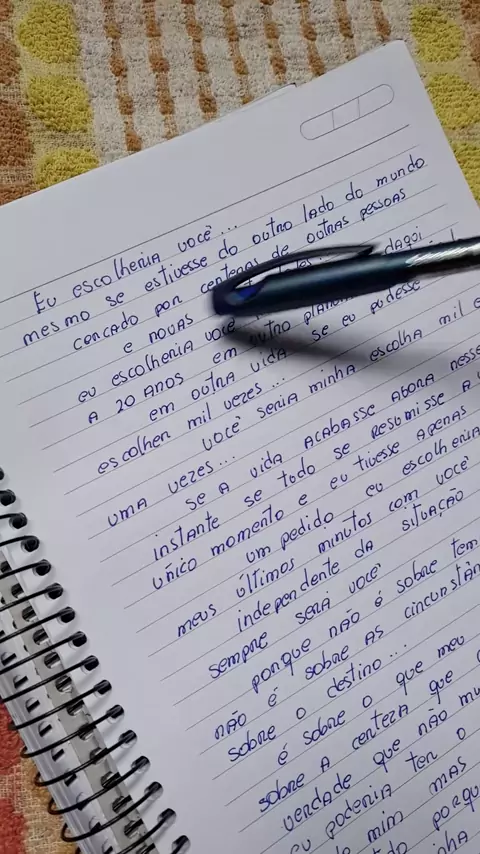 Eu escolheria você...
mesmo se estivesse do outro lado do mundo
cercado por centenas de outras pessoas
e novas
eu escolheria você daqui
a 20 anos em outro
em outra vida se eu pudesse
escolher mil vezes...
você seria minha escolha mil e
uma vezes...
se a vida acabasse agora nesse
instante se todo se resumisse a
único momento e eu tivesse apenas
um pedido eu escolheria
meus últimos minutos com você
independente da situação
sempre será você
porque não é sobre
não é sobre as
sobre o destino...
é sobre o que meu
sobre a certeza que
verdade que não
eu poderia ter o
mim mas